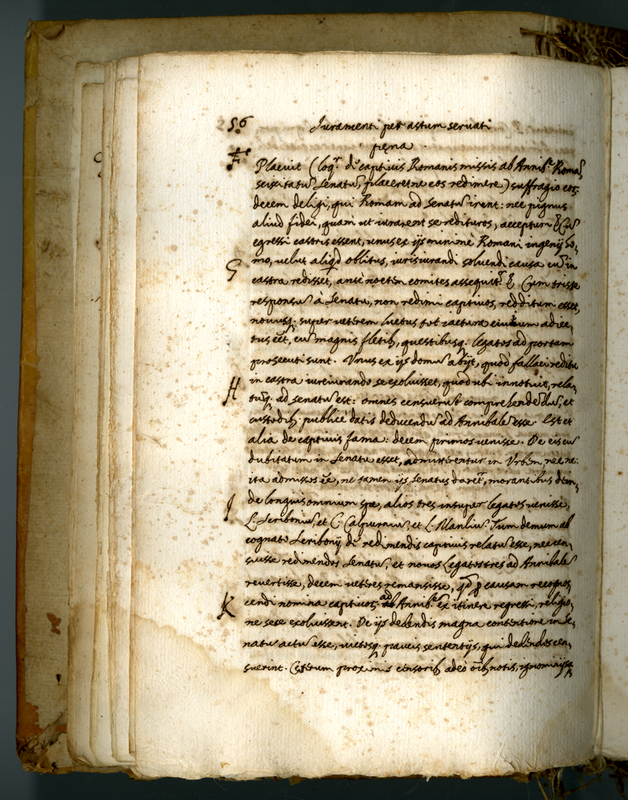 256
Iuramenti per astum seruati
pęna.
F Placuit (loqr. de captiuis Romanis missis ab Annib.e Romā
sciscitatū Senatū, placeretne eos redimere) suffragio eorū
decem deligi, qui Romam ad Senatū irent: nec pignus
aliud fidei, quàm ut iurarent se redituros, acceptum &. Cū
egressi castris essent, unus ex ijs minimè Romani ingenij ho-
G mo, uelut aliqd oblitus, iurisiurandi soluendi causa cū in
castra redisset, antè noctem comites assequitr. &. Cum triste
responsū à Senatu, non redimi captiuos, redditum esset,
nouusq. super ueterem luctus tot iactura ciuium adiec-
tus eēt, cū magnis fletib, questibusq. legatos ad portam
prosecuti sunt. Vnus ex ijs domū abijt, quòd fallaci reditu
H in castra iureiurando se exoluisset, quod ubi innotuit, rela-
tūq. ad senatū est: omnes censuerūt comprehendendū, et
custodib. publicè datis deducendū ad Annibalē esse. Est et
alia de captiuis fama: decem primos uenisse. De eis cū
dubitatum in Senatu esset, admitterentur in Vrbem, nec ne:
ita admissos eē, ne tamen ijs Senatus daretr, morantibus dein-
I de longius omnium spe, alios tres insuper legatos uenisse,
L. Scribonium, et C. Calpurniū, et L. Manliū. Tum demum ab
cognato Scribonij de redimendis captiuis relatū esse, nec cen-
suisse redimendos Senatū, et nouos legatos tres ad Annibalē
reuertisse, decem ueteres remansisse, qd per causam recognos-
K cendi nomina captiuor. ad Annib.e ex itinere regressi, religio-
ne sese exoluissent. De ijs dedendis magna contentione in Se-
natu actū esse, uictosq. paucis sententijs, qui dedendos cen-
suerint. Cęterum proximis censorib. adeo oīb notis, ignominijsq.